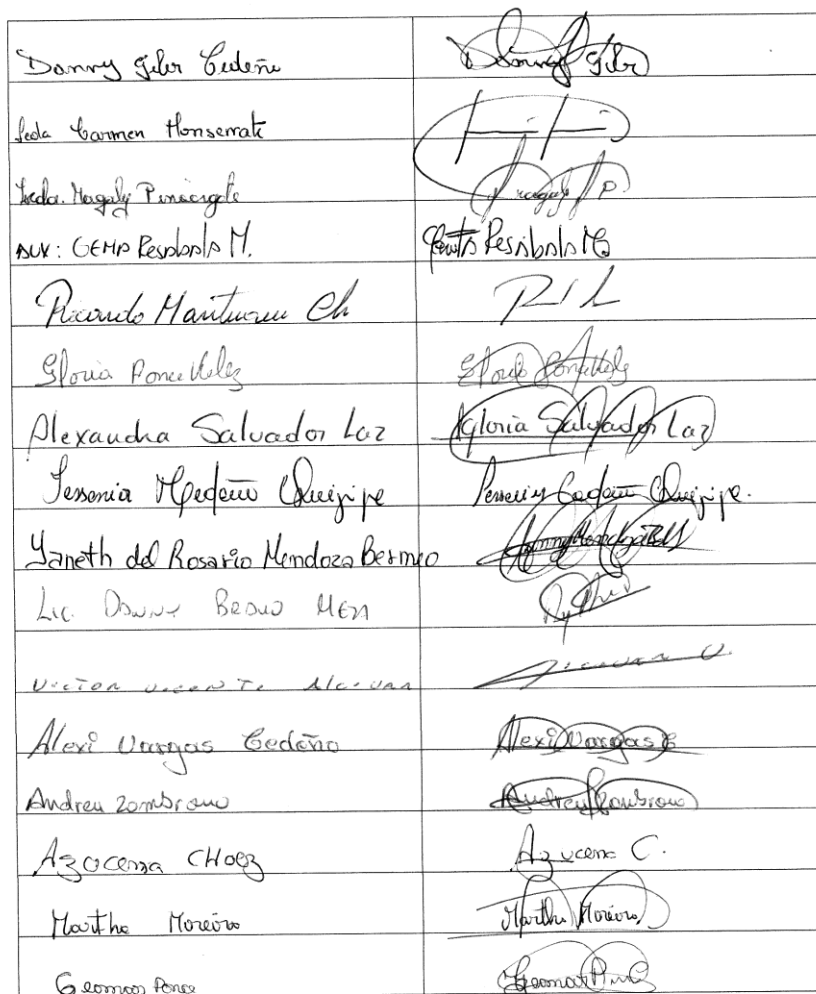 Danny Giler Cedeño Danny Giler
Lcda Carmen Monserrate
Lcda. Magaly Pinargote Magaly P.
AUX: GEMA Resabala M. Resabala M
Ricardo
Gloria Ponce Velez Gloria Ponce Velez
Alexandra Salvador Laz Gloria Salvador Laz
Jessenia Cedeño Quijije Cedeño Quijije.
Yaneth del Rosario Mendoza Bermeo
Lic. Danny Bravo Meza
Victor Vicente Alcivar
Alexi Vargas Cedeño Alexi Vargas C
Andrea Zambrano Andrea Zambrano
Azucena CHoez Azucena C.
Martha Moreira Martha Moreira
Geomar Ponce Geomar